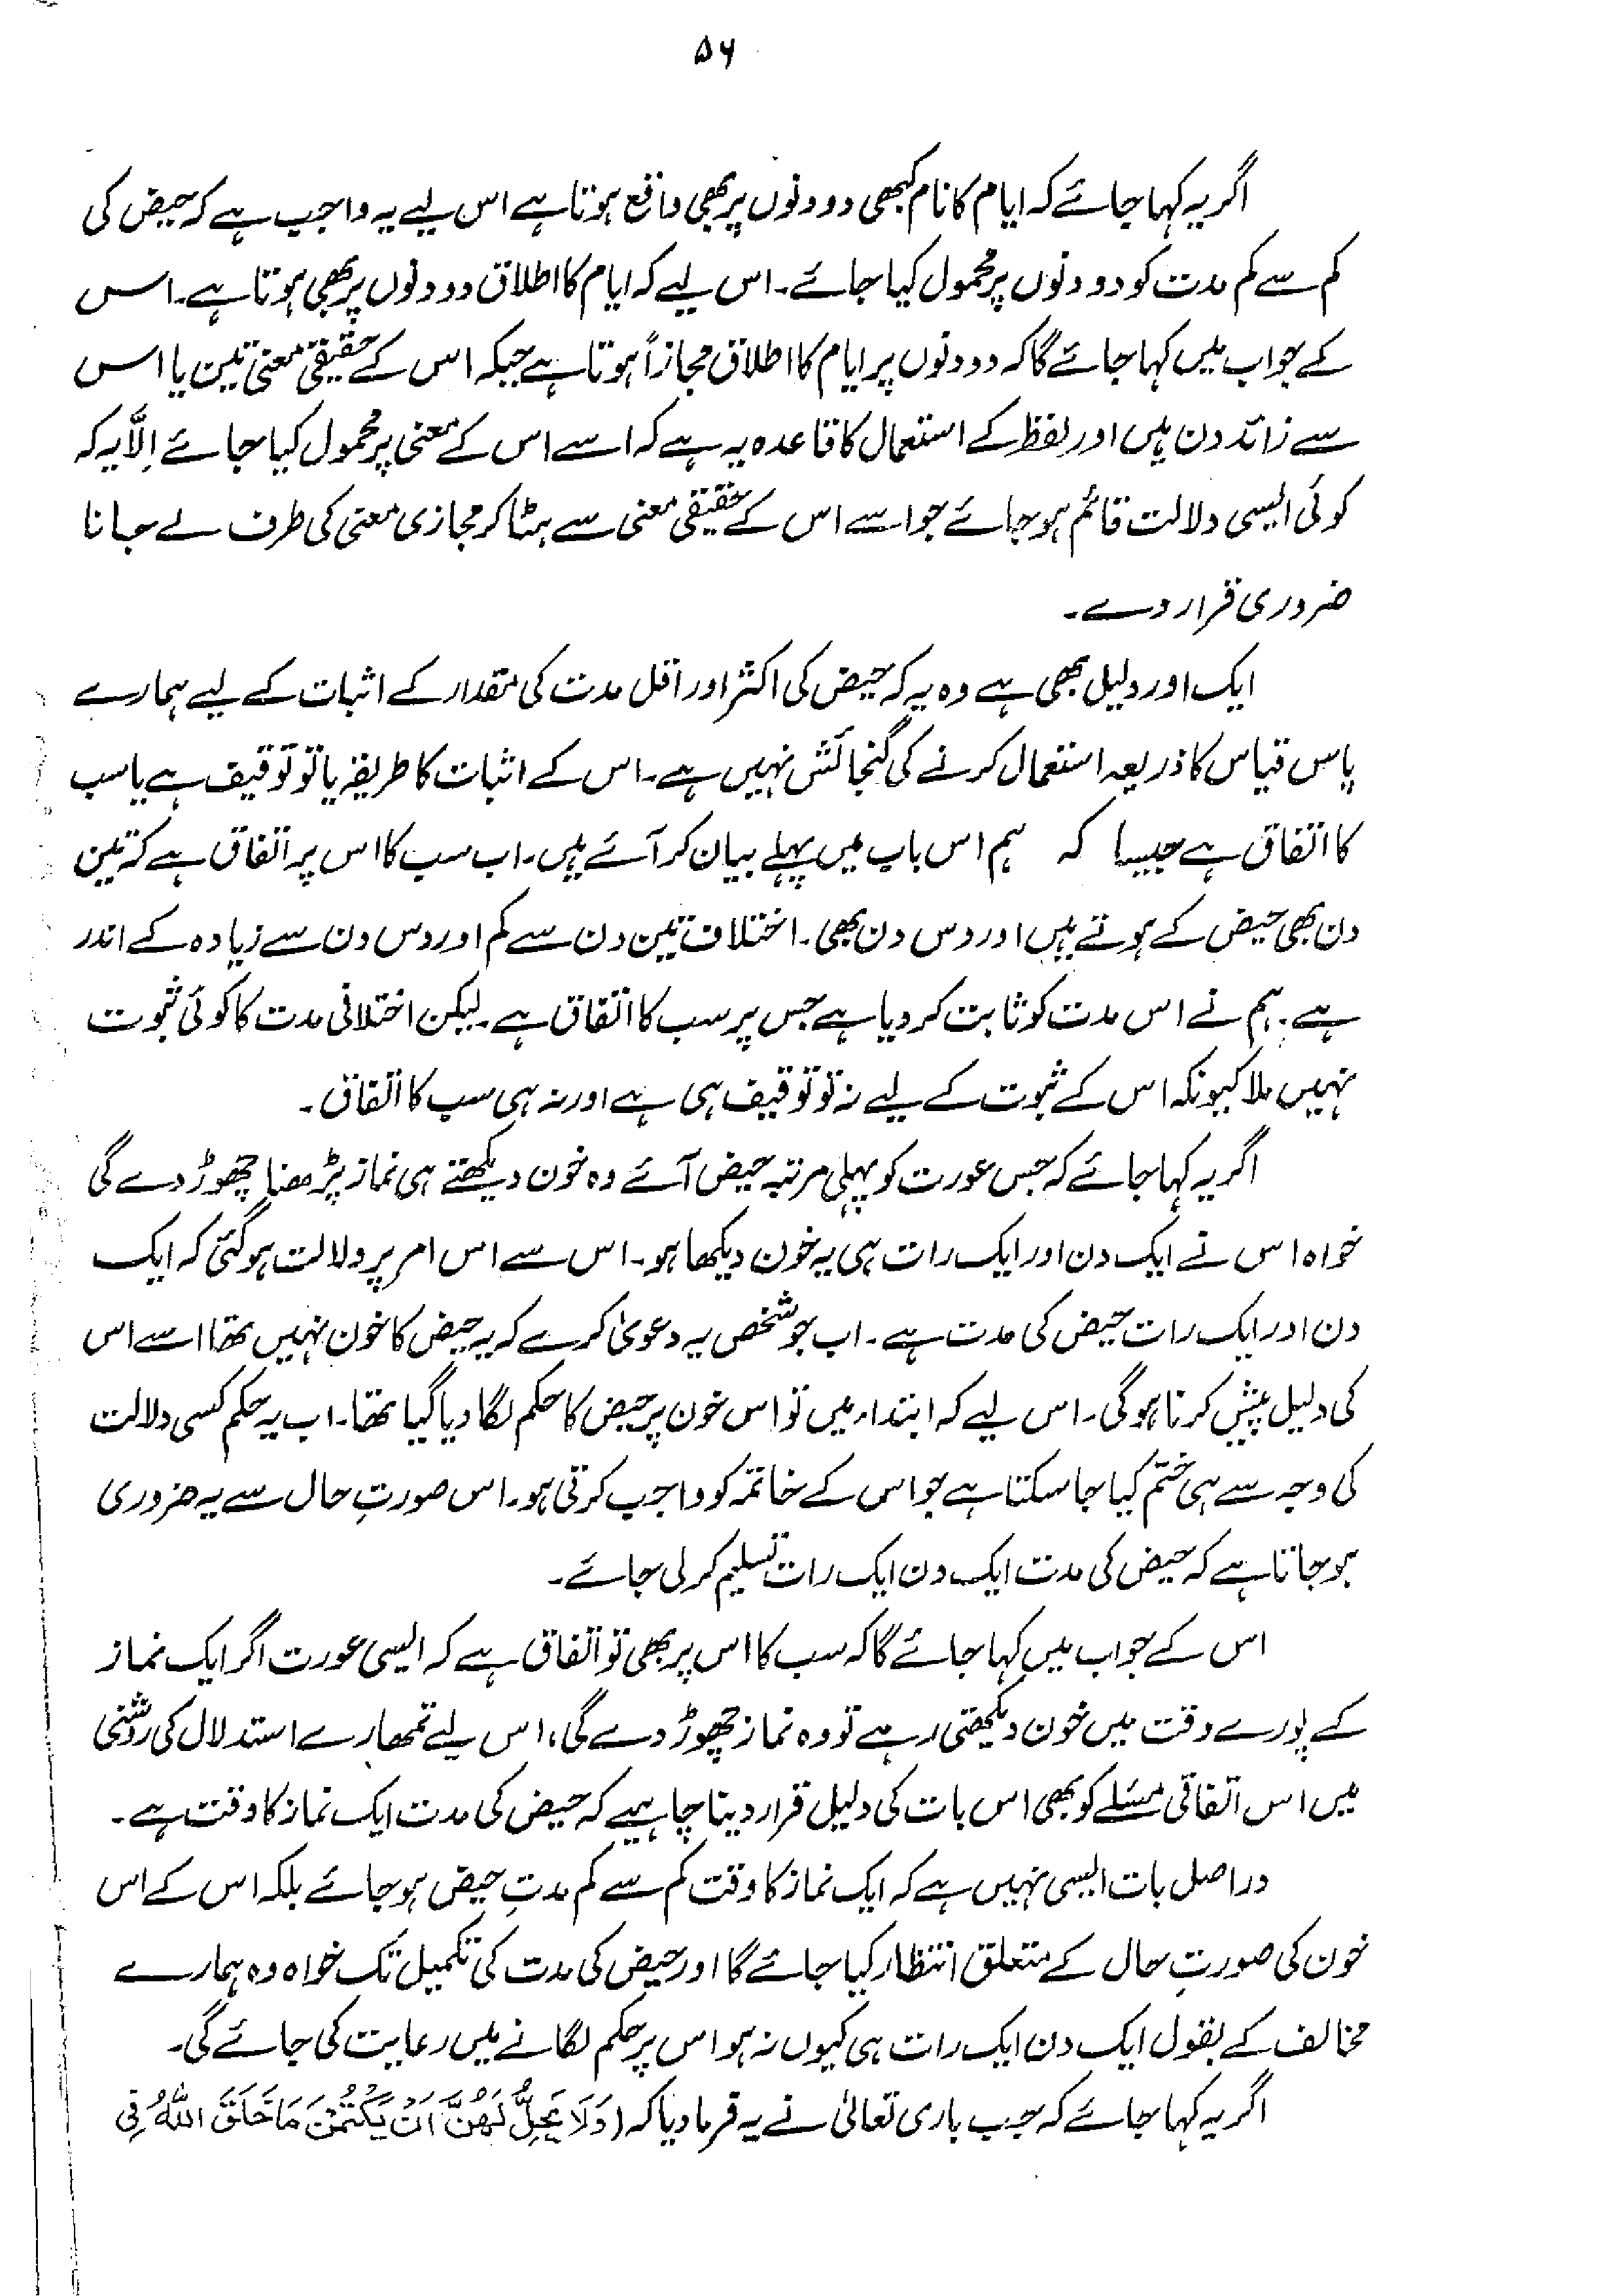 ۵۶
اگر یہ کہا جائے کہ ایام کا نام کبھی دو دنوں پر بھی واقع ہوتا ہے اس لیے یہ واجب ہے کہ حیض کی
کم سے کم مدت کو دو دنوں پر محمول کیا جائے۔ اس لیے کہ ایام کا اطلاق دو دنوں پر بھی ہوتا ہے۔ اس
کے جواب میں کہا جائے گا کہ دو دنوں پر ایام کا اطلاق مجازاً ہوتا ہے جبکہ اس کے حقیقی معنی تین یا اس
سے زائد دن ہیں اور لفظ کے استعمال کا قاعدہ یہ ہے کہ اسے اس کے معنی پر محمول کیا جائے اِلّا یہ کہ
کوئی ایسی دلالت قائم ہو جائے جو اسے اس کے حقیقی معنی سے ہٹا کر مجازی معنی کی طرف لے جانا
ضروری قرار دے۔
ایک اور دلیل بھی ہے وہ یہ کہ حیض کی اکثر اور اقل مدت کی مقدار کے اثبات کے لیے ہمارے
پاس قیاس کا ذریعہ استعمال کرنے کی گنجائش نہیں ہے۔ اس کے اثبات کا طریقہ یا تو توقیف ہے یا سب
کا اتفاق ہے جیسا کہ ہم اس باب میں پہلے بیان کر آئے ہیں۔ اب سب کا اس پر اتفاق ہے کہ تین
دن بھی حیض کے ہوتے ہیں اور دس دن بھی۔ اختلاف تین دن سے کم اور دس دن سے زیادہ کے اندر
ہے۔ ہم نے اس مدت کو ثابت کر دیا ہے جس پر سب کا اتفاق ہے۔ لیکن اختلافی مدت کا کوئی ثبوت
نہیں ملا کیونکہ اس کے ثبوت کے لیے نہ تو توقیف ہی ہے اور نہ ہی سب کا اتفاق۔
اگر یہ کہا جائے کہ جس عورت کو پہلی مرتبہ حیض آئے وہ خون دیکھتے ہی نماز پڑھنا چھوڑ دے گی
خواہ اس نے ایک دن اور ایک رات ہی یہ خون دیکھا ہو۔ اس سے اس امر پر دلالت ہو گئی کہ ایک
دن اور ایک رات حیض کی مدت ہے۔ اب جو شخص یہ دعویٰ کرے کہ یہ حیض کا خون نہیں تھا اسے اس
کی دلیل پیش کرنا ہوگی۔ اس لیے کہ ابتداء میں تو اس خون پر حیض کا حکم لگا دیا گیا تھا۔ اب یہ حکم کسی دلالت
کی وجہ سے ہی ختم کیا جا سکتا ہے جو اس کے خاتمہ کو واجب کرتی ہو۔ اس صورتِ حال سے یہ ضروری
ہو جاتا ہے کہ حیض کی مدت ایک دن ایک رات تسلیم کر لی جائے۔
اس کے جواب میں کہا جائے گا کہ سب کا اس پر بھی تو اتفاق ہے کہ ایسی عورت اگر ایک نماز
کے پورے وقت میں خون دیکھتی رہے تو وہ نماز چھوڑ دے گی، اس لیے تمھارے استدلال کی روشنی
میں اس اتفاقی مسئلے کو بھی اس بات کی دلیل قرار دینا چاہیے کہ حیض کی مدت ایک نماز کا وقت ہے۔
دراصل بات ایسی نہیں ہے کہ ایک نماز کا وقت کم سے کم مدتِ حیض ہو جائے بلکہ اس کے اس
خون کی صورتِ حال کے متعلق انتظار کیا جائے گا اور حیض کی مدت کی تکمیل تک خواہ وہ ہمارے
مخالف کے بقول ایک دن ایک رات ہی کیوں نہ ہو اس پر حکم لگانے میں رعایت کی جائے گی۔
اگر یہ کہا جائے کہ جب باری تعالیٰ نے یہ فرما دیا کہ (وَلَا یَحِلُّ لَھُنَّ اَنْ یَکْتُمْنَ مَا خَلَقَ اللّٰہُ فِی